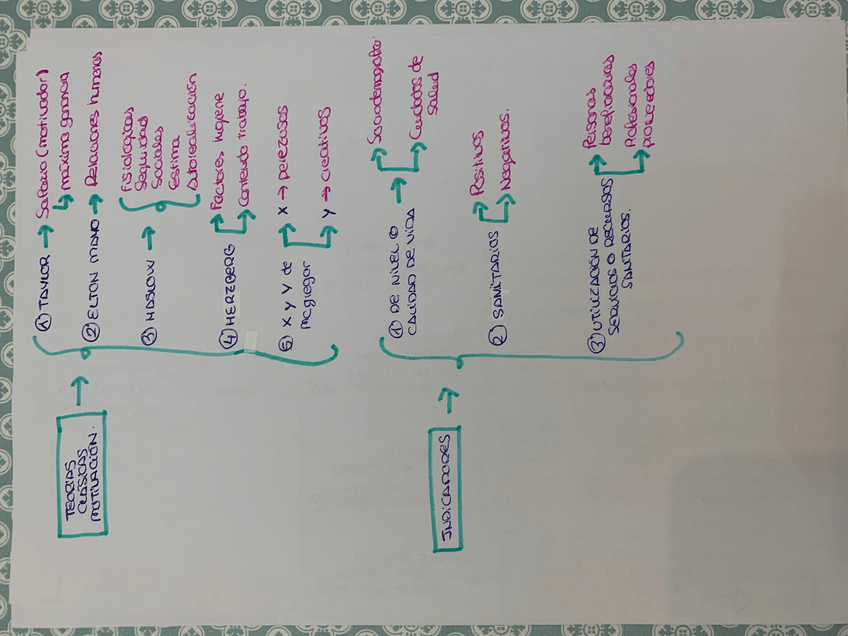 TEORIAS
CLÁSICAS
MUTILACIÓN.
① TAYLOR → Salario (motivador)
↳ máxima ganancia
② ELTON MAYO → Relaciones humanas
③ MASLOW →
Fisiologicas
Seguridad
sociales
estima
Autorealización
④ HERZBERG
Factores higiene
Contenido trabajo.
⑤ X y Y de
Mcgregor
X → perezosos
Y → creativos
INDICADORES
① DE NIVEL O
CALIDAD DE VIDA
Sociodemografico
Cuidados de
salud
② SANITARIOS
Positivos
Negativos.
③ UTILIZACIÓN DE
SERVICIOS O RECURSOS
SANITARIOS.
Personas
beneficiarias
Profesionales
proveedores